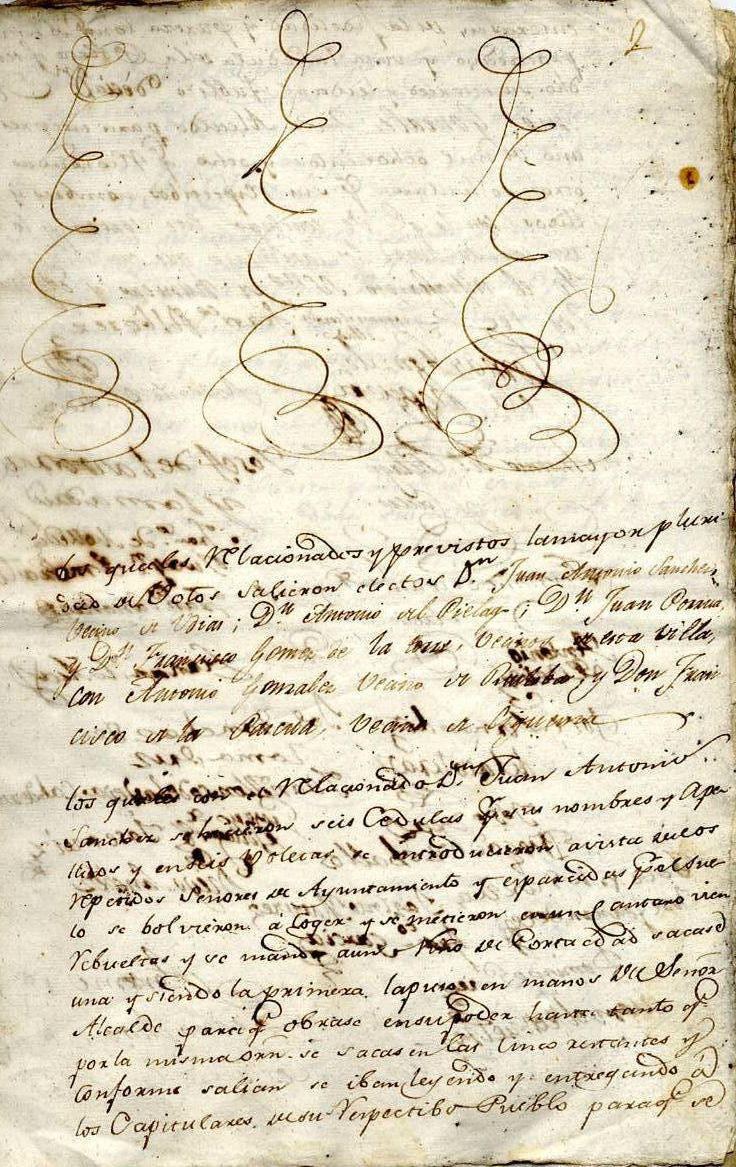 2
los quales Relacionados y previstos la mayor pluri
dad de Votos salieron electos Dn Juan Antonio Sanchez
Vecino de Udias; Dn Antonio del Pielag; Dn Juan Porrua,
y Dn Francisco Gomez de la torre, Vecinos de esta Villa,
con Antonio Gonzalez Vecino de Ruiloba, y Don Fran
cisco de la Pascua, Vecino de Cigüenza
los quales con el Relacionado Dn Juan Antonio
Sanchez se hicieron seis Cedulas de sus nombres y Ape
llidos y en seis volecas se introdugeron a vista de los
repetidos Señores de Ayuntamiento y esparcidas por el sue
lo se bolvieron á Coger y se metieron en un Cantaro vien
Rebueltas y se mandó a un Niño de Corta edad sacase
una y siendo la primera, la puso en manos del Señor
Alcalde para q obrase en su poder hasta tanto q
por la misma orn se sacasen las Cinco restantes y
Conforme salian se iban leyendo y entregando á
los Capitulares de su Respectibo Pueblo para q se